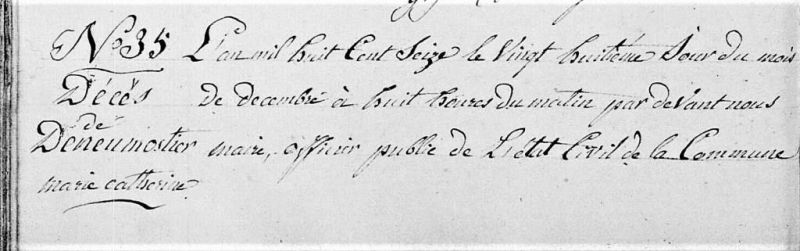 N.o 35 L'an mil huit Cent Seize le Vingt huitième Jour du mois
Décés de decembre à huit heures du matin par devant nous
de
Deneumostier maire, officier public de L'état Civil de la Commune
marie catherine